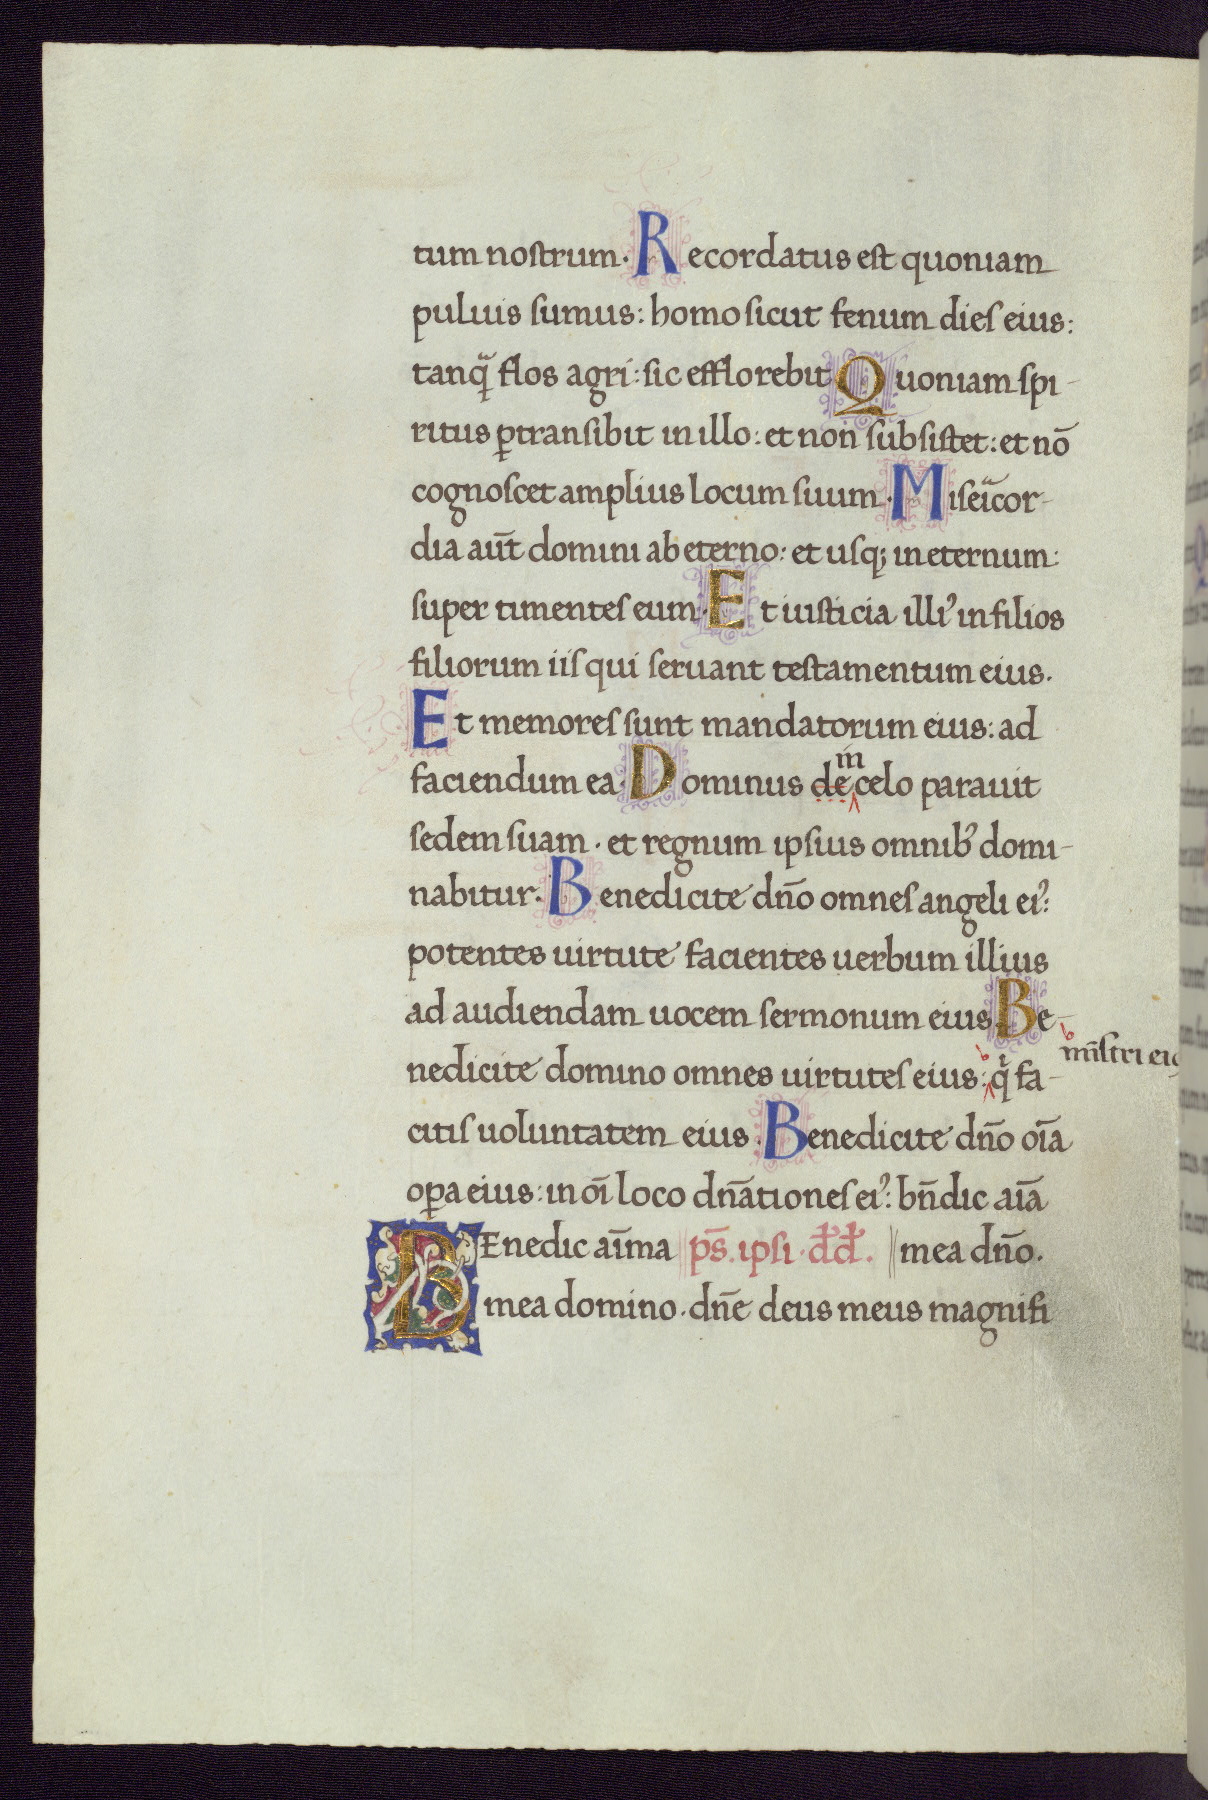 tum nostrum. Recordatus est quoniam
puluis sumus: homo sicut fenum dies eius:
tanq̃ flos agri: sic efflorebit Quoniam spi-
ritus ꝑtransibit in illo: et non subsistet: et nō
cognoscet amplius locum suum. Miseiᷓcor-
dia aūt domini ab eterno: et usq; in eternum:
super timentes eum. Et iusticia illi᾽ in filios
filiorum iis qui seruant testamentum eius.
Et memores sunt mandatorum eius: ad
in
faciendum ea. Dominus de celo parauit
sedem suam. et regnum ipsius omnib᾽ domi-
nabitur. Benedicite dn̄o omnes angeli ei᾽:
potentes uirtute facientes uerbum illius
ad audiendam uocem sermonum eius. Be-
mīstri ei
nedicite domino omnes uirtutes eius: qͥ fa-
citis uoluntatem eius. Benedicite dn̄o oīa
oꝑa eius: in oī loco dn̄ationes ei᾽: bn̄dic aīa
BEnedic aīma ps̄. ipsi. dd. mea dn̄o.
mea domino. dn̄e deus meus magnifi